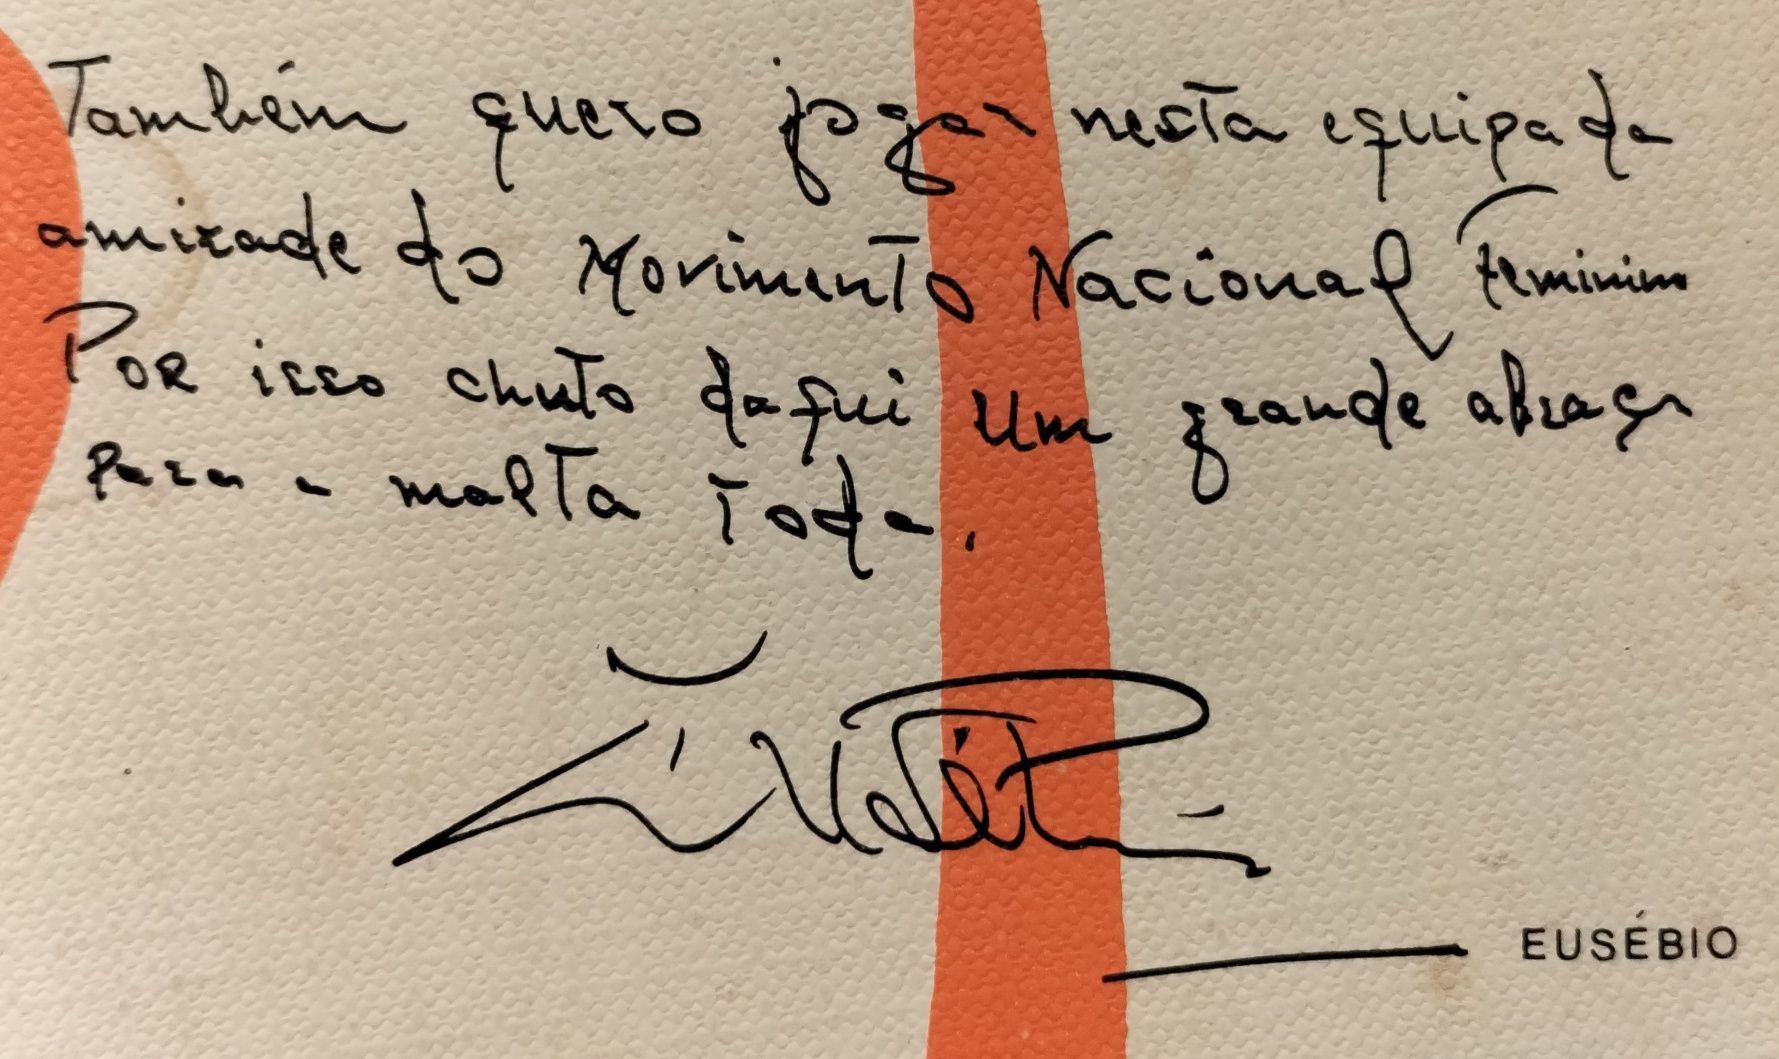 Também quero jogar nesta equipa da
amizade do Movimento Nacional Feminino
Por isso chuto daqui um grande abraço
para a malta toda.
EUSÉBIO